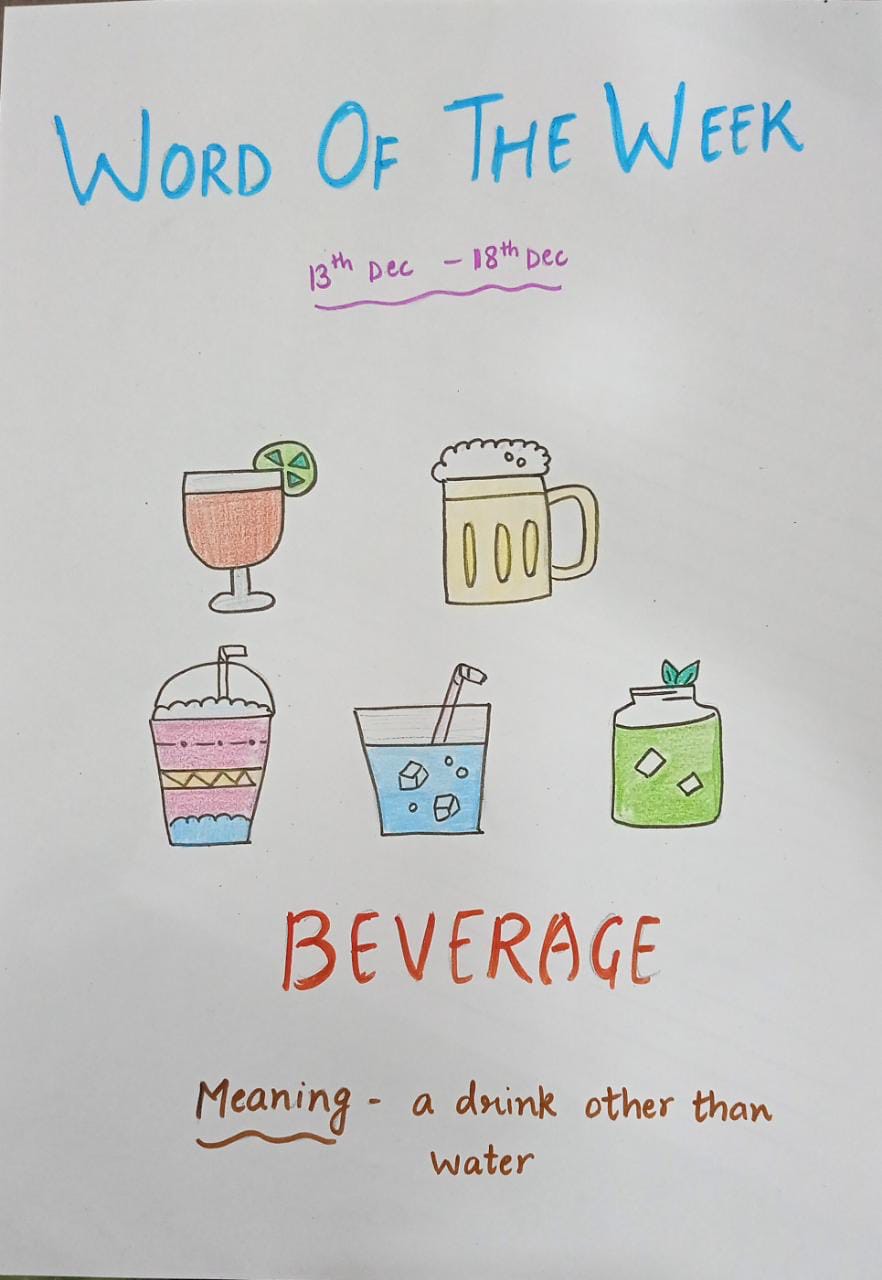 WORD OF THE WEEK
13th Dec - 18th Dec
BEVERAGE
Meaning - a drink other than
water